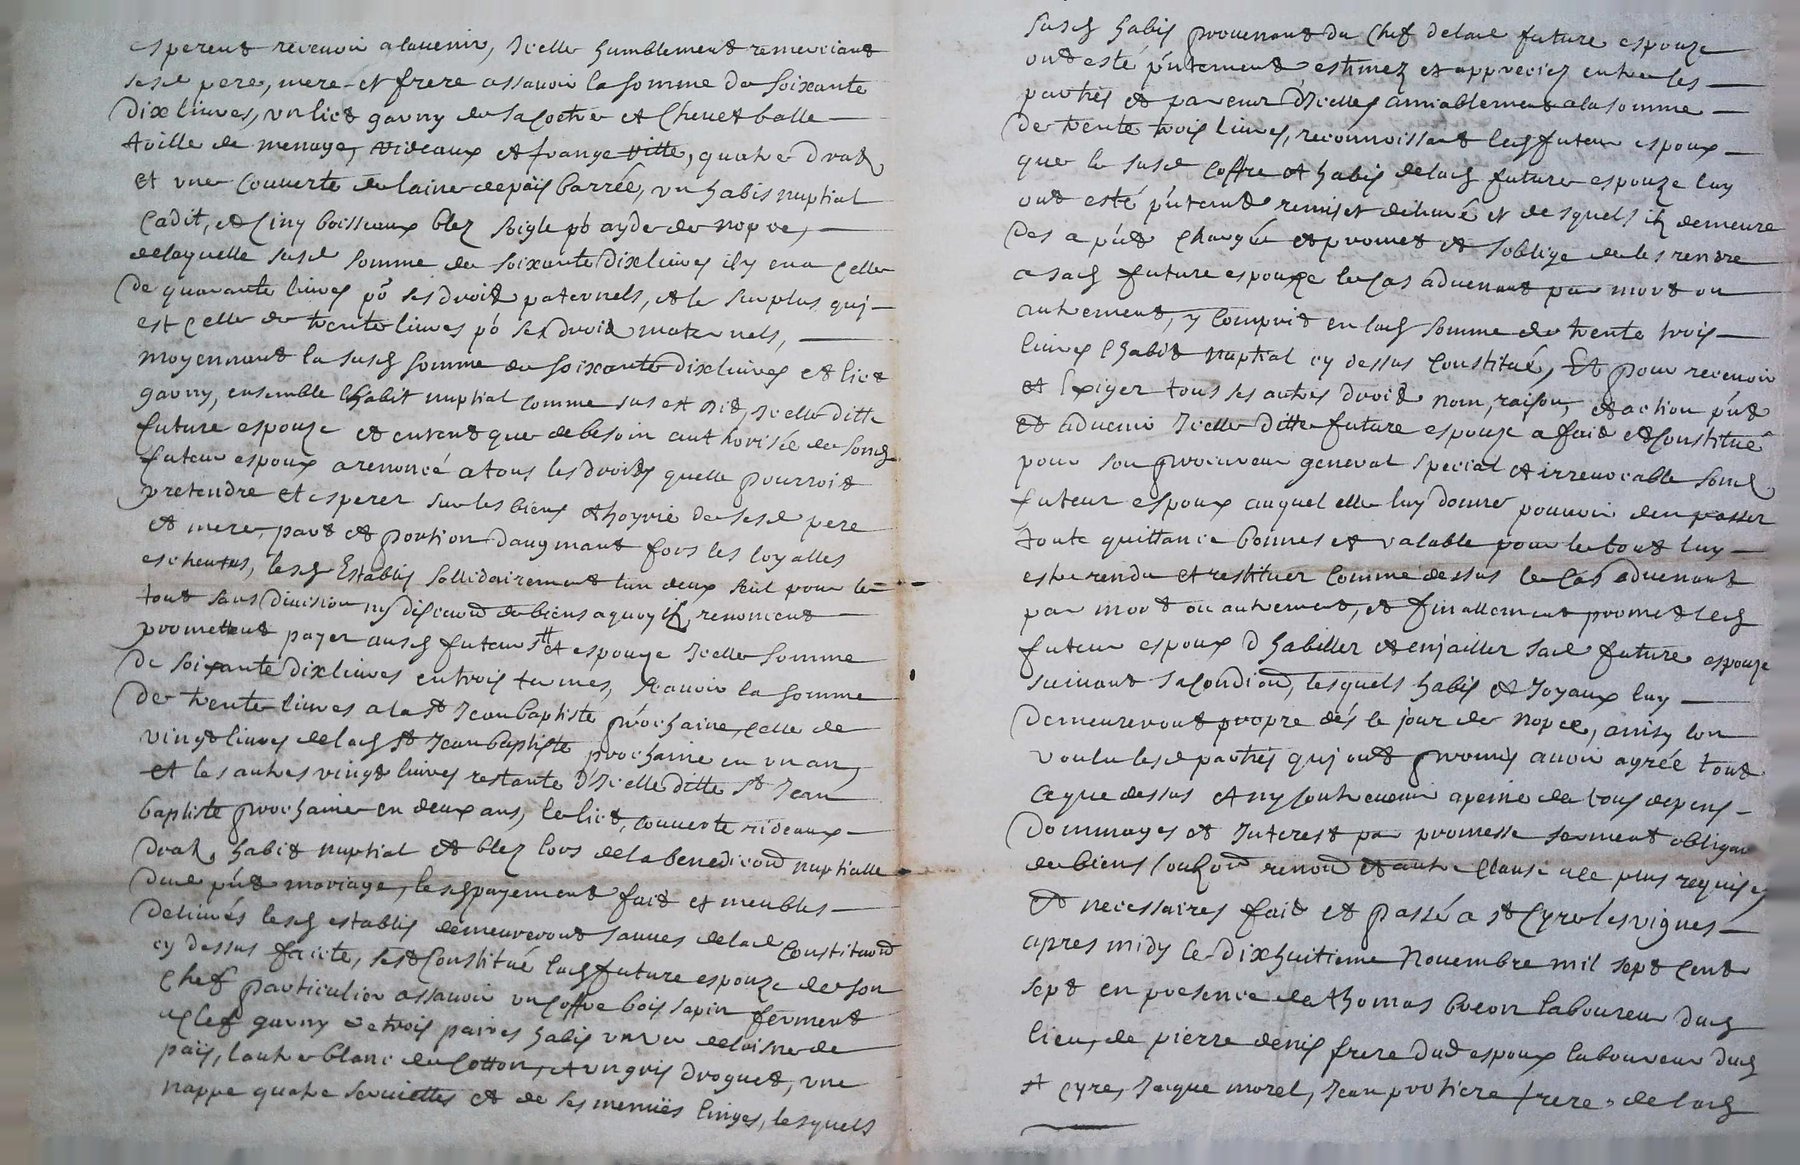 esperent recevoir alavenir, Icelle humblement remerciant
sesd pere, mere et frere assavoir la somme de soixante
dix livres, un lict garny de sa coetre et Chevet balle
toille de menage, rideaux et frange, quatre drah
et une Couverte de laine de païs barrée, un habis nuptial
Cadit, et Cinq boisseaux blez soigle po ayde de nopce,
delaquelle susd somme de soixante dix livres il y en a Celle
de quarante livres po ses droit paternels, et le surplus quj
est Celle de trente livres po ses droit maternels,
moyennant la susd somme de soixante dix livres et lict
garny, ensemble lhabit nuptial Comme sus est dit, Icelle ditte
future espouze et en tent que de besoin authorisée de sond
futeur espoux a renoncé a tous les droits quelle pourroit
pretendre et esperer sur les biens et hoyrie de sesd pere
et mere, part et portion daugmant fors les loyalles
escheutes, lesd Establis sollidairement lun deux seul pour le
tout sans division ny discution de biens a quoy ils renoncent
promettent payer ausd futeurs et espouze Icelle somme
de soixante dix livres en trois termes, scavoir la somme
de trente livres a la St Jean baptiste prochaine, celle de
vingt livres de lad St Jean baptiste prochaine en un an,
et les autres vingt livres restante d'Icelle ditte St Jean
baptiste prochaine en deux ans, le lict, couverte rideaux
drah, habit nuptial et blez lors de la benediction nuptialle
dud pnt mariage, lesd payement fait et meubles
delivrés lesd establis demeureront sauves delad Constitution
cy dessus faicte, sest Constitué lad future espouze de son
Chef particulier assavoir un Coffre bois sapin ferment
a Clef garny de trois paires habis un de laisne de
païs, lautre blanc de Cotton, et un gris droguet, une
nappe quatre serviettes et de ses menuës linges, lesquels
susd habis provenant du Chef delad future espouze
ont esté pntement estimez et appreciez entre les
parties et par eux d'Icelles amiablement a la somme
de trente trois livres, reconnoissant led futeur espoux
que le susd Coffre et habis delad future espouze luy
ont esté pntement remis et delivré et desquels il demeure
des a pnt Chargée et promet et soblige de les rendre
a sad future espouze le Cas advenant par mort ou
autrement, y Compris en lad somme de trente trois
livres lhabit nuptial cy dessus Constitué, Et pour recevoir
et Exiger tous ses autres droit nom, raison, et action pnt
et advenir Icelle ditte future espouze a fait et Constitué
pour son procureur general special et irrevocable sond
futeur espoux auquel elle luy donne pouvoir den passer
toute quittance bonnes et valable pour le tout luy
estre rendu et restituer Comme dessus le Cas advenant
par mort ou autrement, et finallement promet led
futeur espoux d'habiller et enjailler sad future espouze
suivant sa Condition, lesquels habis et Joyaux luy
demeureront propre dés le jour de Nopce, ainsy lon
voulu lesd parties quj ont promis avoir agrée tout
Ceque dessus et ny Contrevenir apeine de tous depens
dommages et Interest par promesse serment obligaon
de biens renon et autre Clause a ce plus requises
et necessaires fait et passé a St Cyre les vignes
apres midy le dixhuitieme Novembre mil sept Cent
sept en presence de thomas breon laboureur dud
lieu, de pierre denis frere dud espoux laboureur dud
St Cyre, Jacque morel, Jean protiere frere de lad